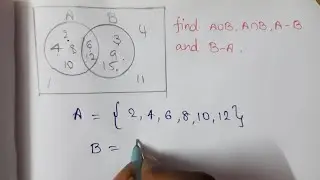 A B
find A∪B, A∩B, A-B
and B-A.
2 4
4 8 6 3
12 9
10 15
1 11
A = { 2, 4, 6, 8, 10, 12 },
B =